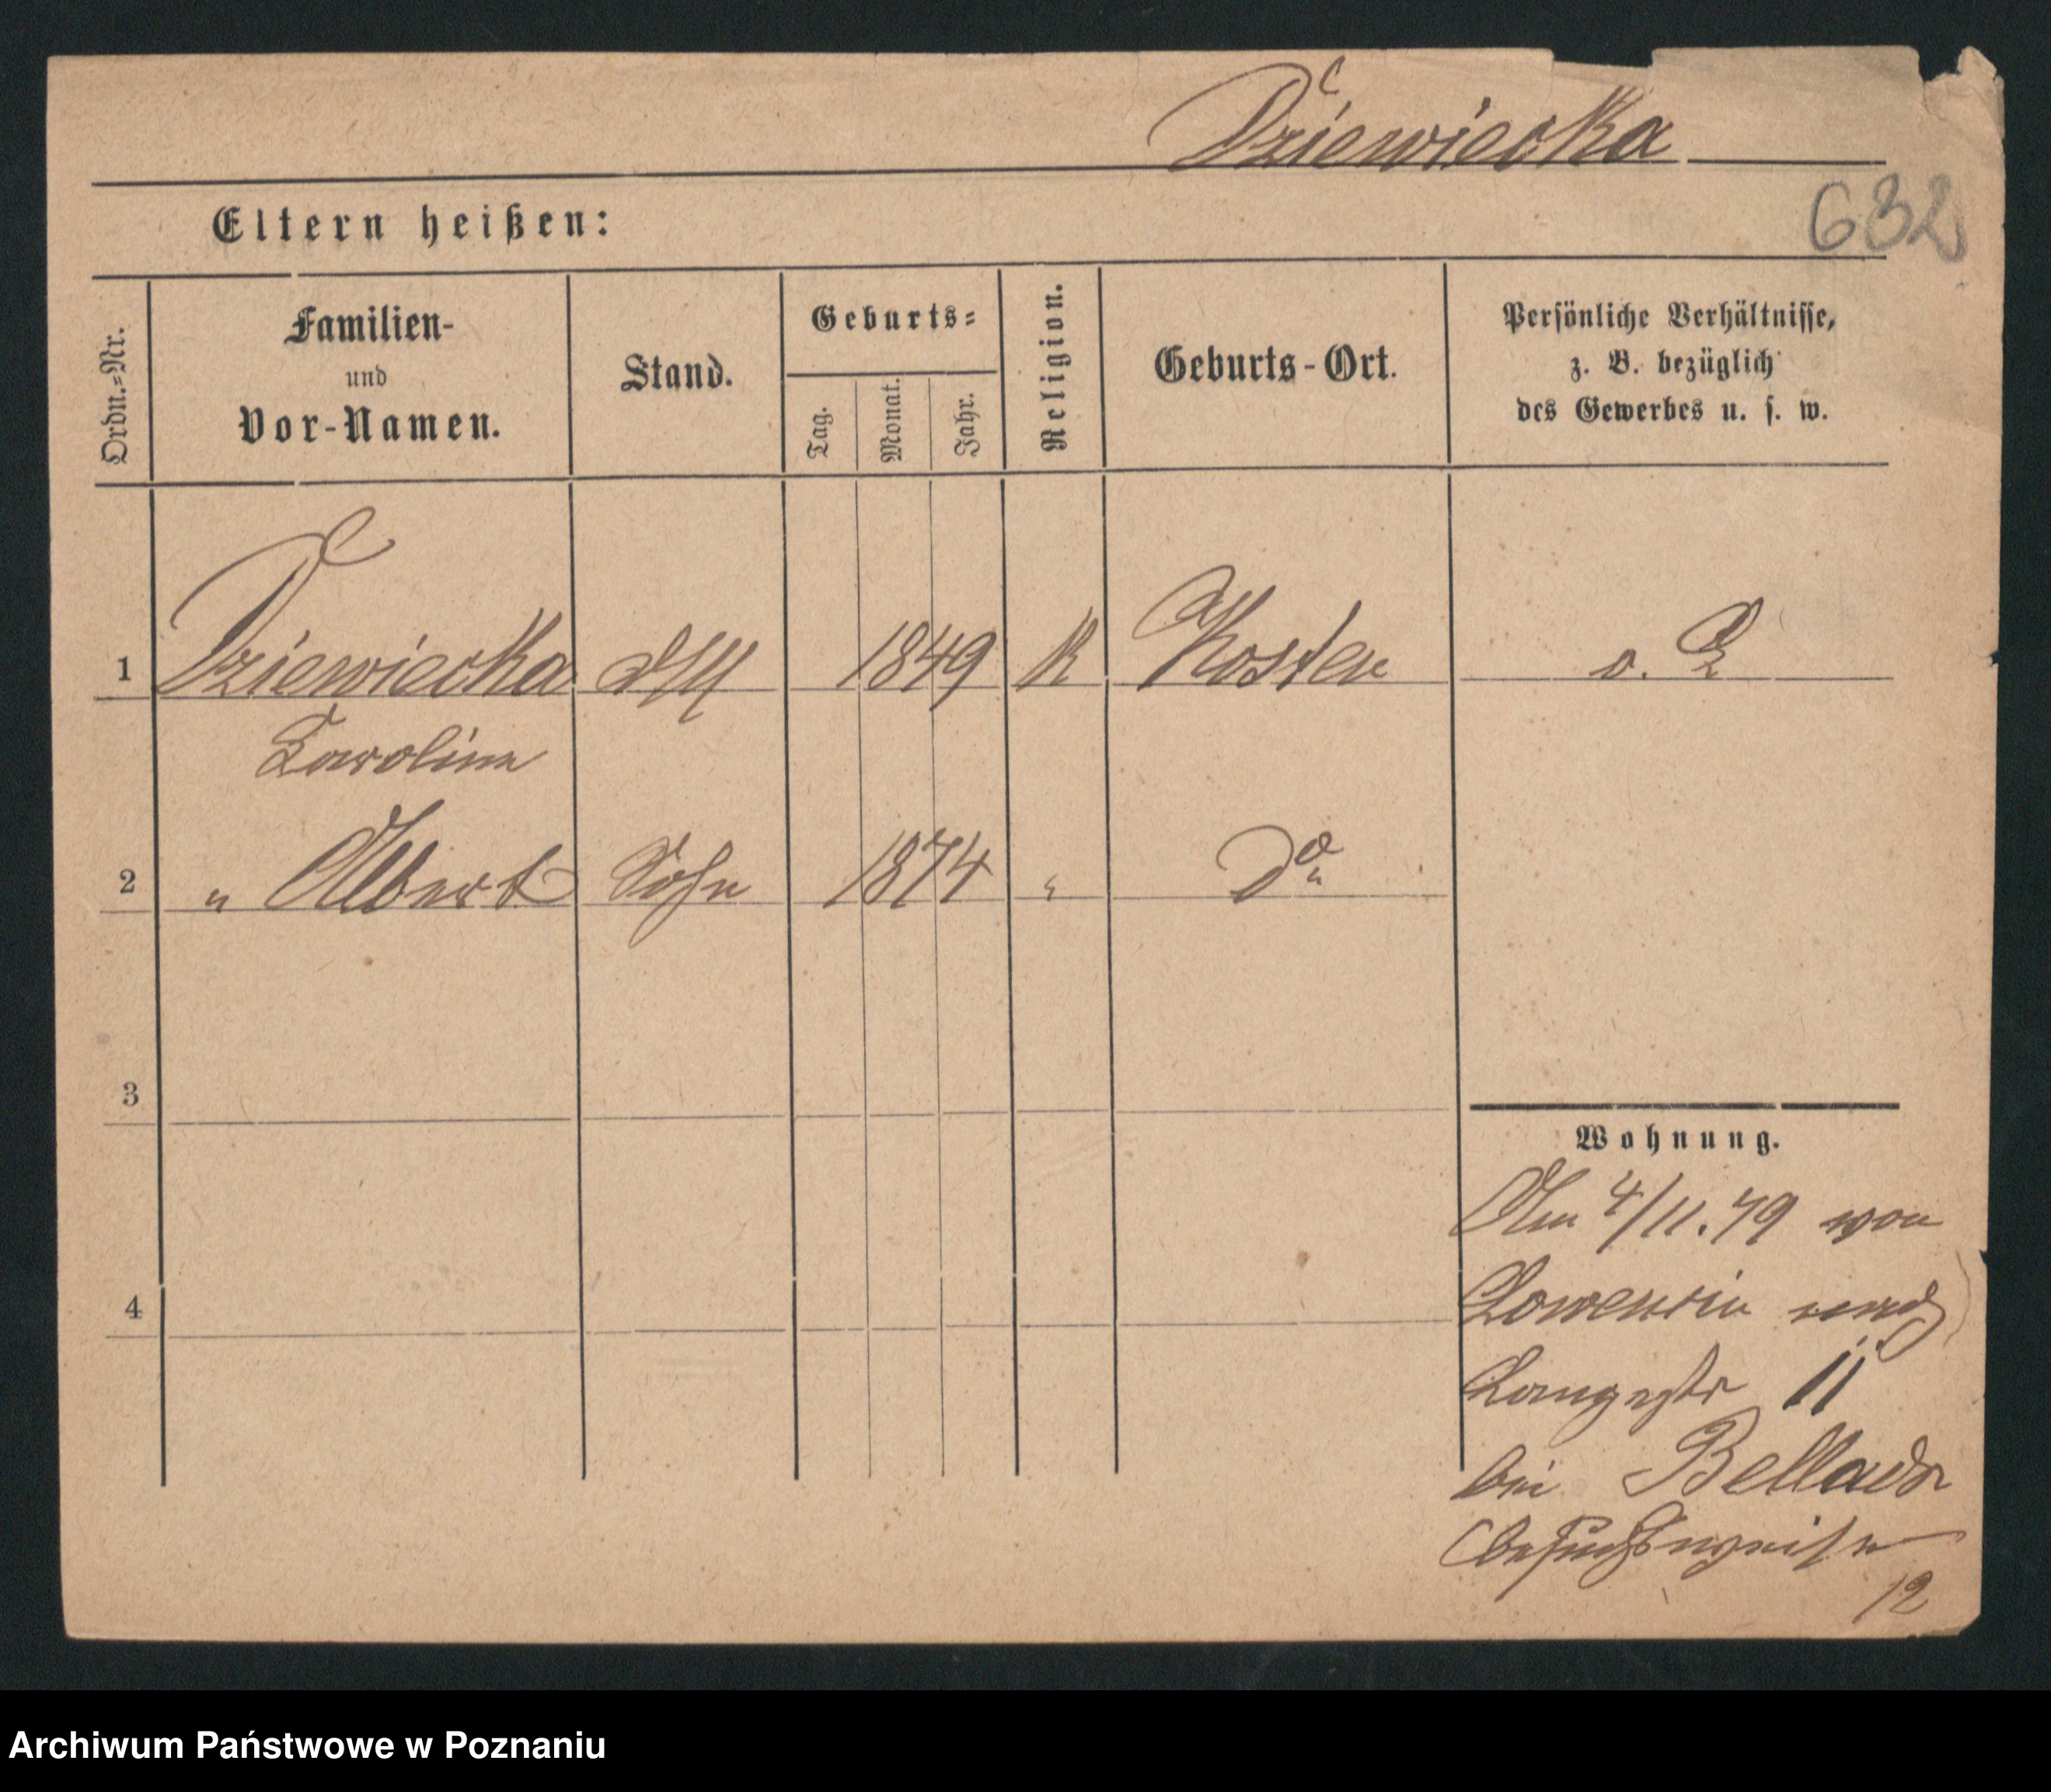 Dziewiecka
632
Eltern heißen:
Ordn.=Nr.
Familien-
und
Vor-Namen.
Stand.
Geburts=
Tag.
Monat.
Jahr.
Religion.
Geburts-Ort.
Persönliche Verhältnisse,
z. B. bezüglich
des Gewerbes u. s. w.
1 Dziewiecka 1849 K Kosten
Carolina
2 " Albert Sohn 1874 " Do
3
Wohnung.
Am 4/11.79 von
nach
4
Langestr 11
bei
besuchsweise
12
Archiwum Państwowe w Poznaniu